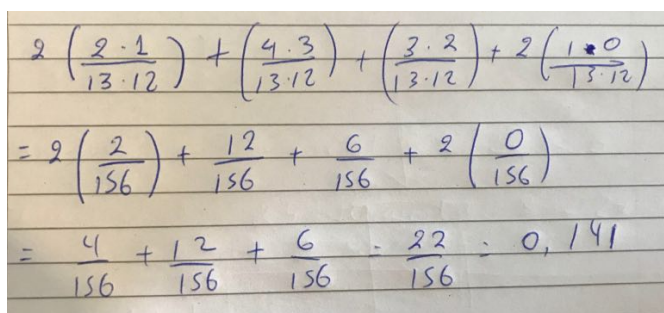 2 (2·1/13·12) + (4·3/13·12) + (3·2/13·12) + 2 (1·0/13·12)
= 2 (2/156) + 12/156 + 6/156 + 2 (0/156)
= 4/156 + 12/156 + 6/156 = 22/156 = 0,141